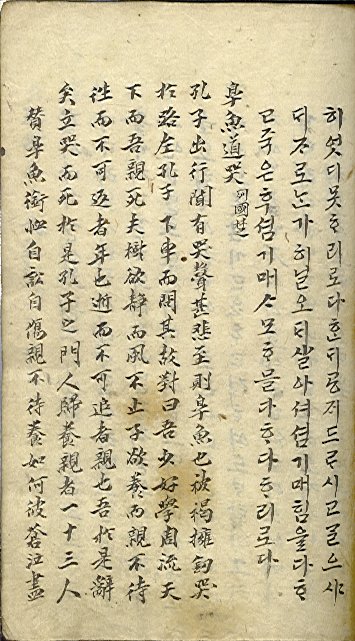 히엿디못ᄒᆞ리로다ᄒᆞᆫ대듕유드ᄅᆞ시고ᄀᆞᆯᄋᆞ샤
ᄃᆡᄌᆞ로ᄂᆞᆫ가히닐오ᄃᆡ살아셔셤기매힘을다ᄒᆞ
고죽은후셤기매ᄉᆞ모ᄒᆞ믈다ᄒᆞ다ᄒᆞ리로다
皐魚道哭 列國楚
孔子出行聞有哭聲甚悲至則皐魚也被褐擁劍哭
於路左孔子下車而問其故對曰吾少好學周流天
下而吾親死夫樹欲靜而風不止子欲養而親不待
徃而不可返者年也逝而不可追者親也吾於是辭
矣立哭而死於是孔子之門人歸養親者一十三人
贊皐魚銜恤自訟自傷親不待養如何彼蒼江盡